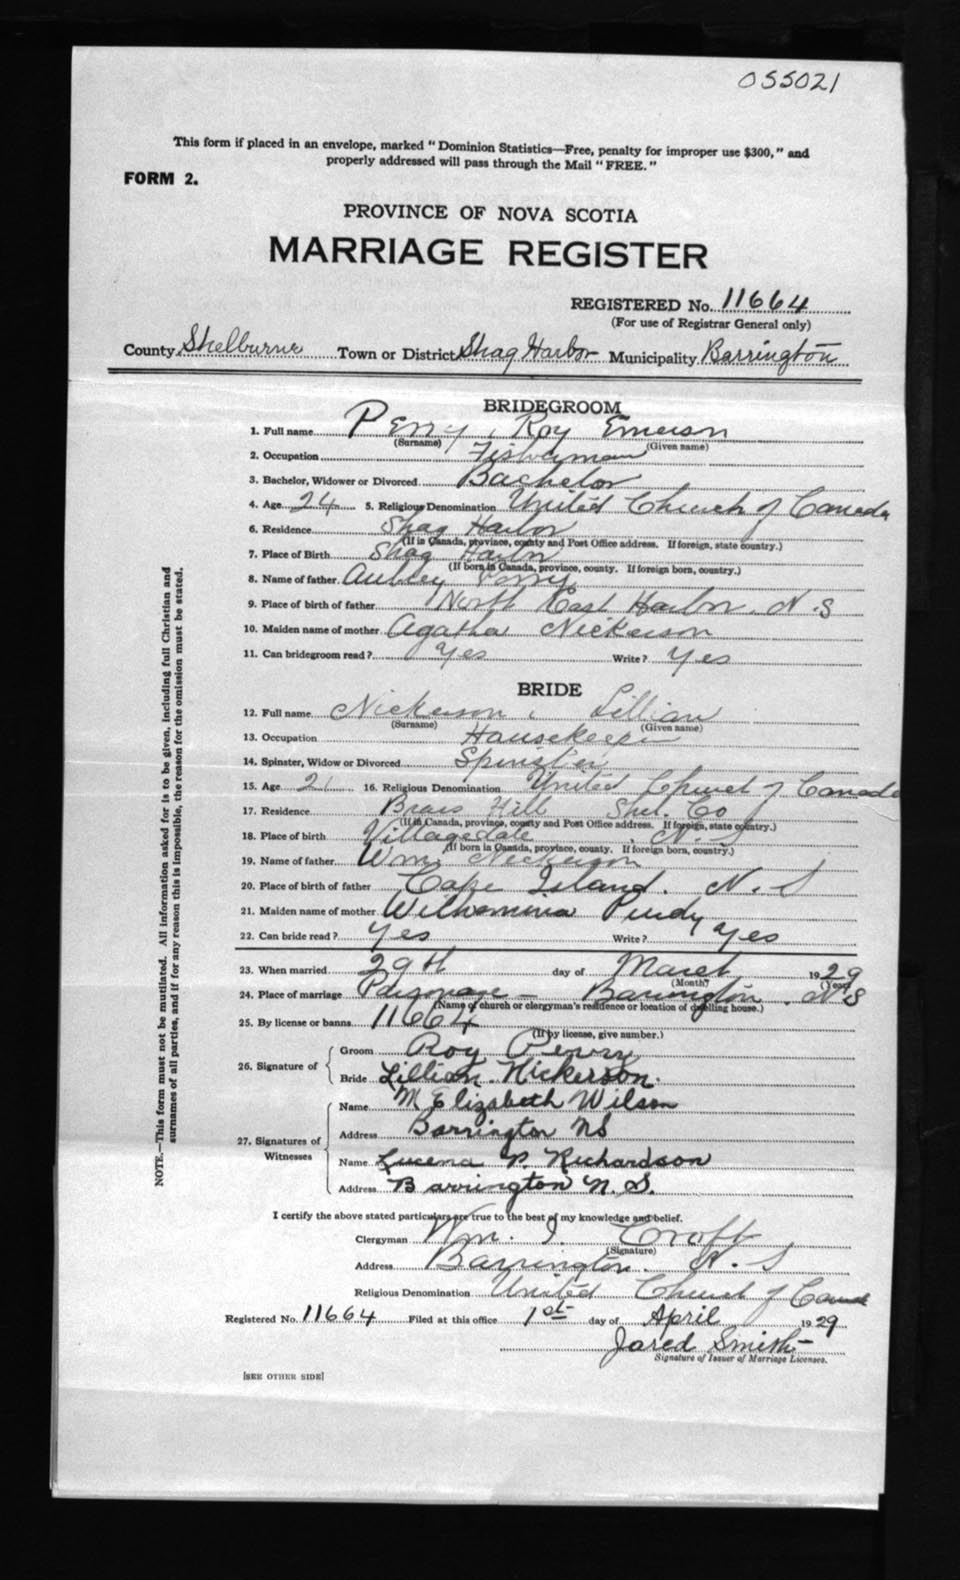 055021
This form if placed in an envelope, marked "Dominion Statistics—Free, penalty for improper use $300," and
properly addressed will pass through the Mail "FREE."
FORM 2.
PROVINCE OF NOVA SCOTIA
MARRIAGE REGISTER
REGISTERED No. 11664
(For use of Registrar General only)
County Shelburne Town or District Shag Harbor Municipality Barrington
BRIDEGROOM
1. Full name Perry, Roy Emerson
(Surname) (Given name)
2. Occupation Fisherman
3. Bachelor, Widower or Divorced Bachelor
4. Age 24 5. Religious Denomination United Church of Canada
6. Residence Shag Harbor
(If in Canada, province, county and Post Office address. If foreign, state country.)
7. Place of Birth Shag Harbor
(If born in Canada, province, county. If foreign born, country.)
8. Name of father Aubley Perry
9. Place of birth of father North East Harbor. N.S
10. Maiden name of mother Agatha Nickerson
11. Can bridegroom read? Yes Write? Yes
BRIDE
12. Full name Nickerson, Lillian
(Surname) (Given name)
13. Occupation Housekeeper
14. Spinster, Widow or Divorced Spinster
15. Age 21 16. Religious Denomination United Church of Canada
17. Residence Brass Hill Shel. Co
(If in Canada, province, county and Post Office address. If foreign, state country.)
18. Place of birth Villagedale, N.S
(If born in Canada, province, county. If foreign born, country.)
19. Name of father Wm. Nickerson
20. Place of birth of father Cape Island. N.S
21. Maiden name of mother Wilhemina Purdy
22. Can bride read? Yes Write? Yes
23. When married 29th day of March 1929
(Month) (Year)
24. Place of marriage Parsonage — Barrington. N.S
(Name of church or clergyman's residence or location of dwelling house.)
25. By license or banns 11664
(If by license, give number.)
26. Signature of
Groom Roy Perry
Bride Lillian. Nickerson.
27. Signatures of Witnesses
Name M Elizabeth Wilson
Address Barrington NS
Name Lucena P. Richardson
Address Barrington N.S.
I certify the above stated particulars are true to the best of my knowledge and belief.
Clergyman Wm. I. Croft
(Signature)
Address Barrington. N.S
Religious Denomination United Church of Canada
Registered No. 11664 Filed at this office 1st day of April 1929
Jared Smith
Signature of Issuer of Marriage Licenses.
[SEE OTHER SIDE]
NOTE.—This form must not be mutilated. All information asked for is to be given, including full Christian and
surnames of all parties, and if for any reason this is impossible, the reason for the omission must be stated.